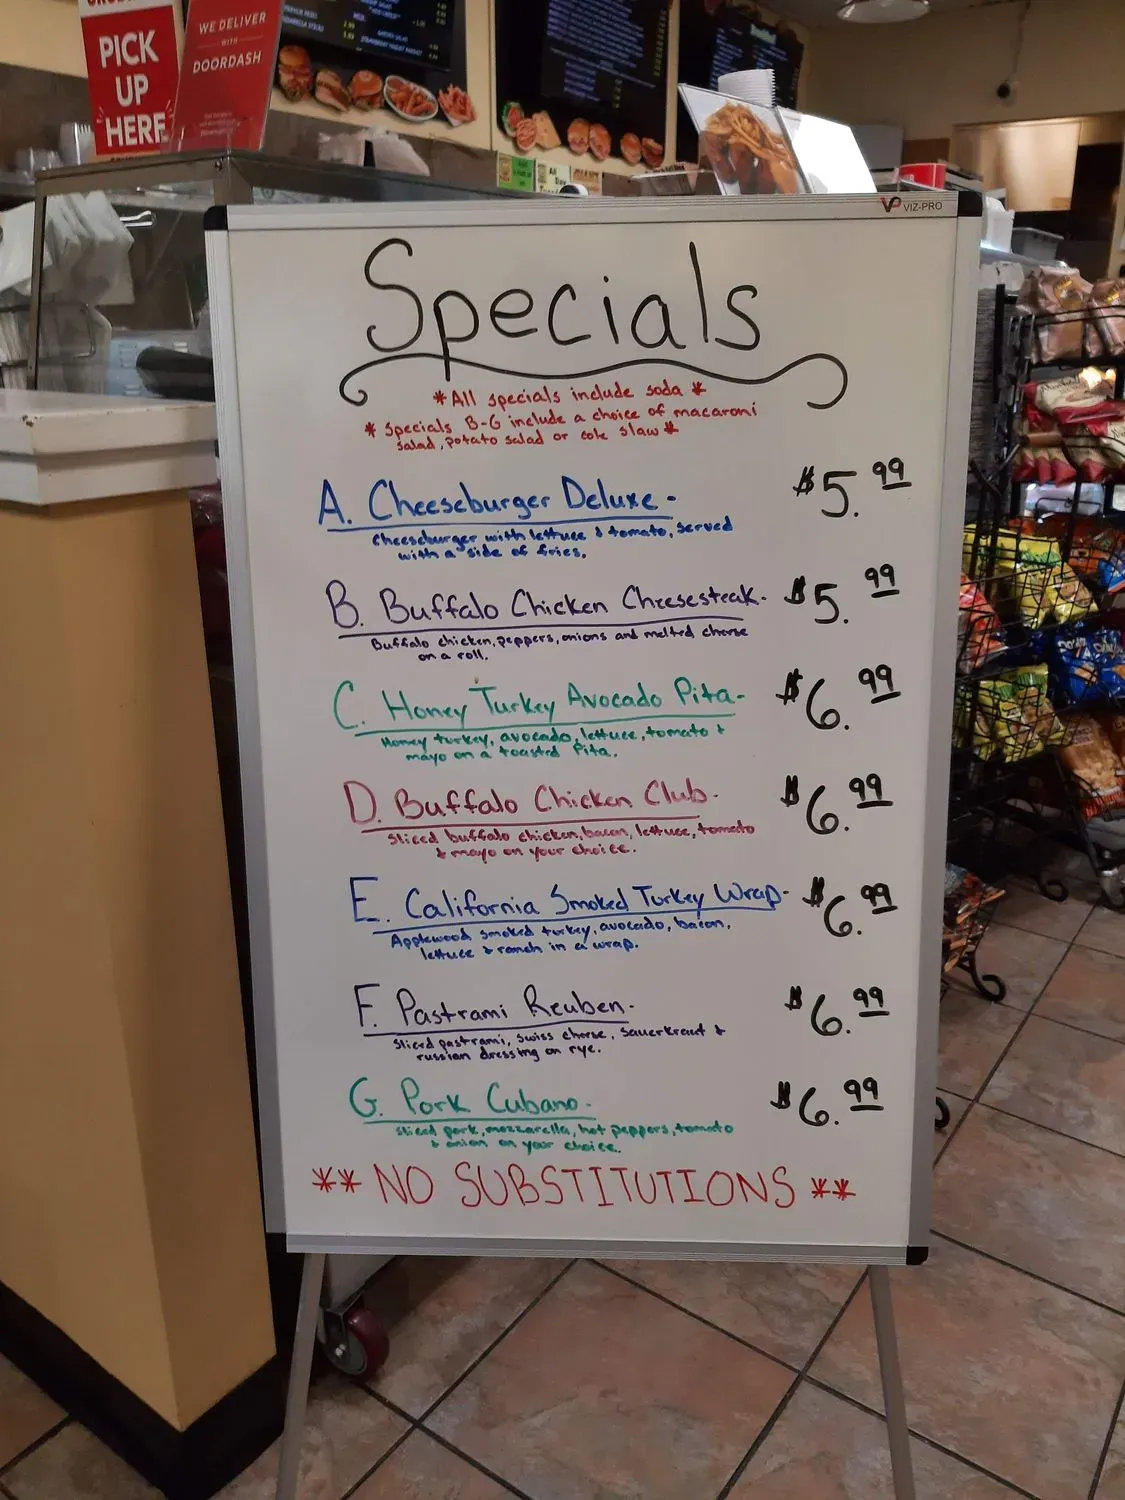 PICK
UP
HERE
WE DELIVER
WITH
DOORDASH
VP VIZ-PRO
Specials
*All specials include soda*
*Specials B-G include a choice of macaroni
salad, potato salad or cole slaw*
A. Cheeseburger Deluxe- $5.99
Cheeseburger with lettuce & tomato, served
with a side of fries.
B. Buffalo Chicken Cheesesteak- $5.99
Buffalo chicken, peppers, onions and melted cheese
on a roll.
C. Honey Turkey Avocado Pita- $6.99
Honey turkey, avocado, lettuce, tomato &
mayo on a toasted Pita.
D. Buffalo Chicken Club- $6.99
Sliced buffalo chicken, bacon, lettuce, tomato
& mayo on your choice.
E. California Smoked Turkey Wrap- $6.99
Applewood smoked turkey, avocado, bacon,
lettuce & ranch in a wrap.
F. Pastrami Reuben- $6.99
Sliced pastrami, swiss cheese, sauerkraut &
russian dressing on rye.
G. Pork Cubano- $6.99
Sliced pork, mozzarella, hot peppers, tomato
& onion on your choice.
** NO SUBSTITUTIONS **